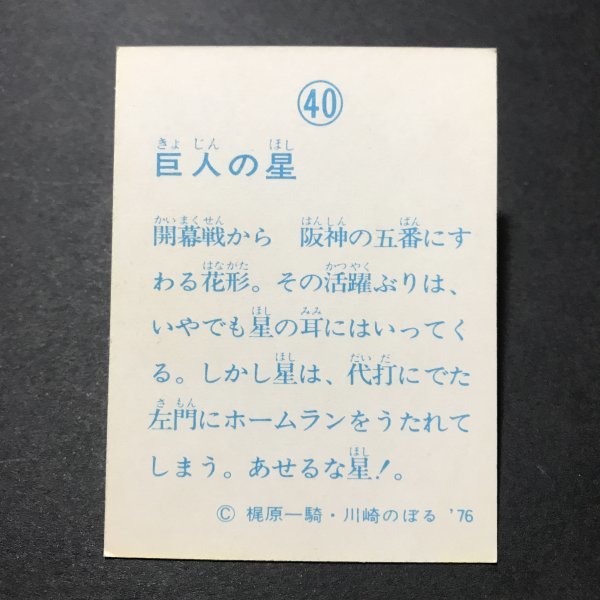 40
きょ じん ほし
巨人の星
かいまくせん はんしん ばん
開幕戦から 阪神の五番にす
はながた かつやく
わる花形。その活躍ぶりは、
ほし みみ
いやでも星の耳にはいってく
ほし だい だ
る。しかし星は、代打にでた
さ もん
左門にホームランをうたれて
ほし
しまう。あせるな星!。
© 梶原一騎・川崎のぼる '76